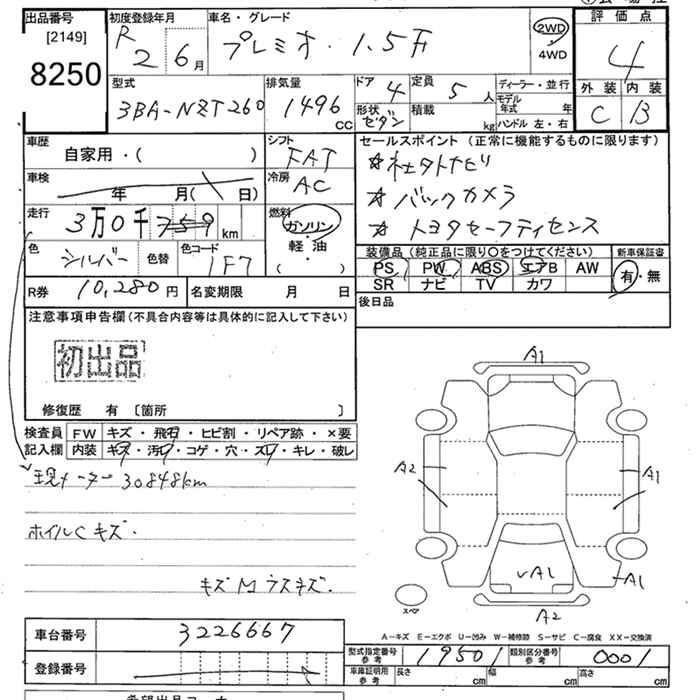 出品番号
[2149]
8250
初度登録年月
R 2 6月
車名・グレード
プレミオ・1.5F
2WD
4WD
評価点
4
外装 内装
C B
型式
3BA-NZT260
排気量
1496 cc
ドア 4
定員 5 人
形状 セダン
積載 kg
ディーラー・並行
モデル年式 年
ハンドル 左・右
車歴
自家用・( )
車検
年 月( 日)
走行
3万0千759 km
色
シルバー
色替
色コード
1F7
シフト
FAT
冷房
AC
燃料
ガソリン・
軽・油
( ・ )
セールスポイント(正常に機能するものに限ります)
☆社外ナビ
☆バックカメラ
☆トヨタセーフティセンス
装備品(純正品に限り○をつけてください)
PS PW ABS エアB AW
SR ナビ TV カワ
新車保証書
有・無
R券 10,280円
名変期限 月 日
後日品
注意事項申告欄(不具合内容等は具体的に記入して下さい)
初出品
修復歴 有 〔箇所 〕
検査員
記入欄
FW キズ・飛石・ヒビ割・リペア跡・×要
内装 キズ・汚レ・コゲ・穴・スレ・キレ・破レ
現メーター 30848km
ホイルCキズ.
キズM ラスキズ.
A1
A2
A1
✓A1
A1
A2
スペア
A-キズ E-エクボ U-凹み W-補修跡 S-サビ C-腐食 XX-交換済
車台番号 3226667
登録番号
型式指定番号 参考 19501
類別区分番号 参考 0001
車庫証明用 参考 長さ cm 幅 cm 高さ cm